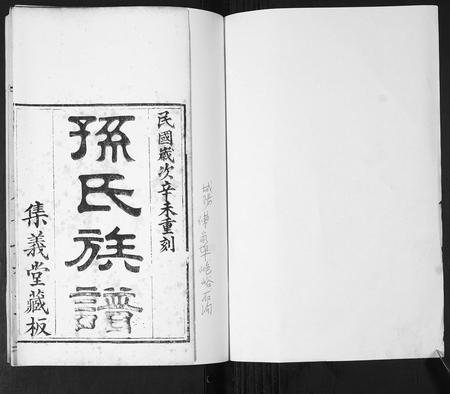 民國歲次辛未重刻
孫氏族譜
集義堂藏板